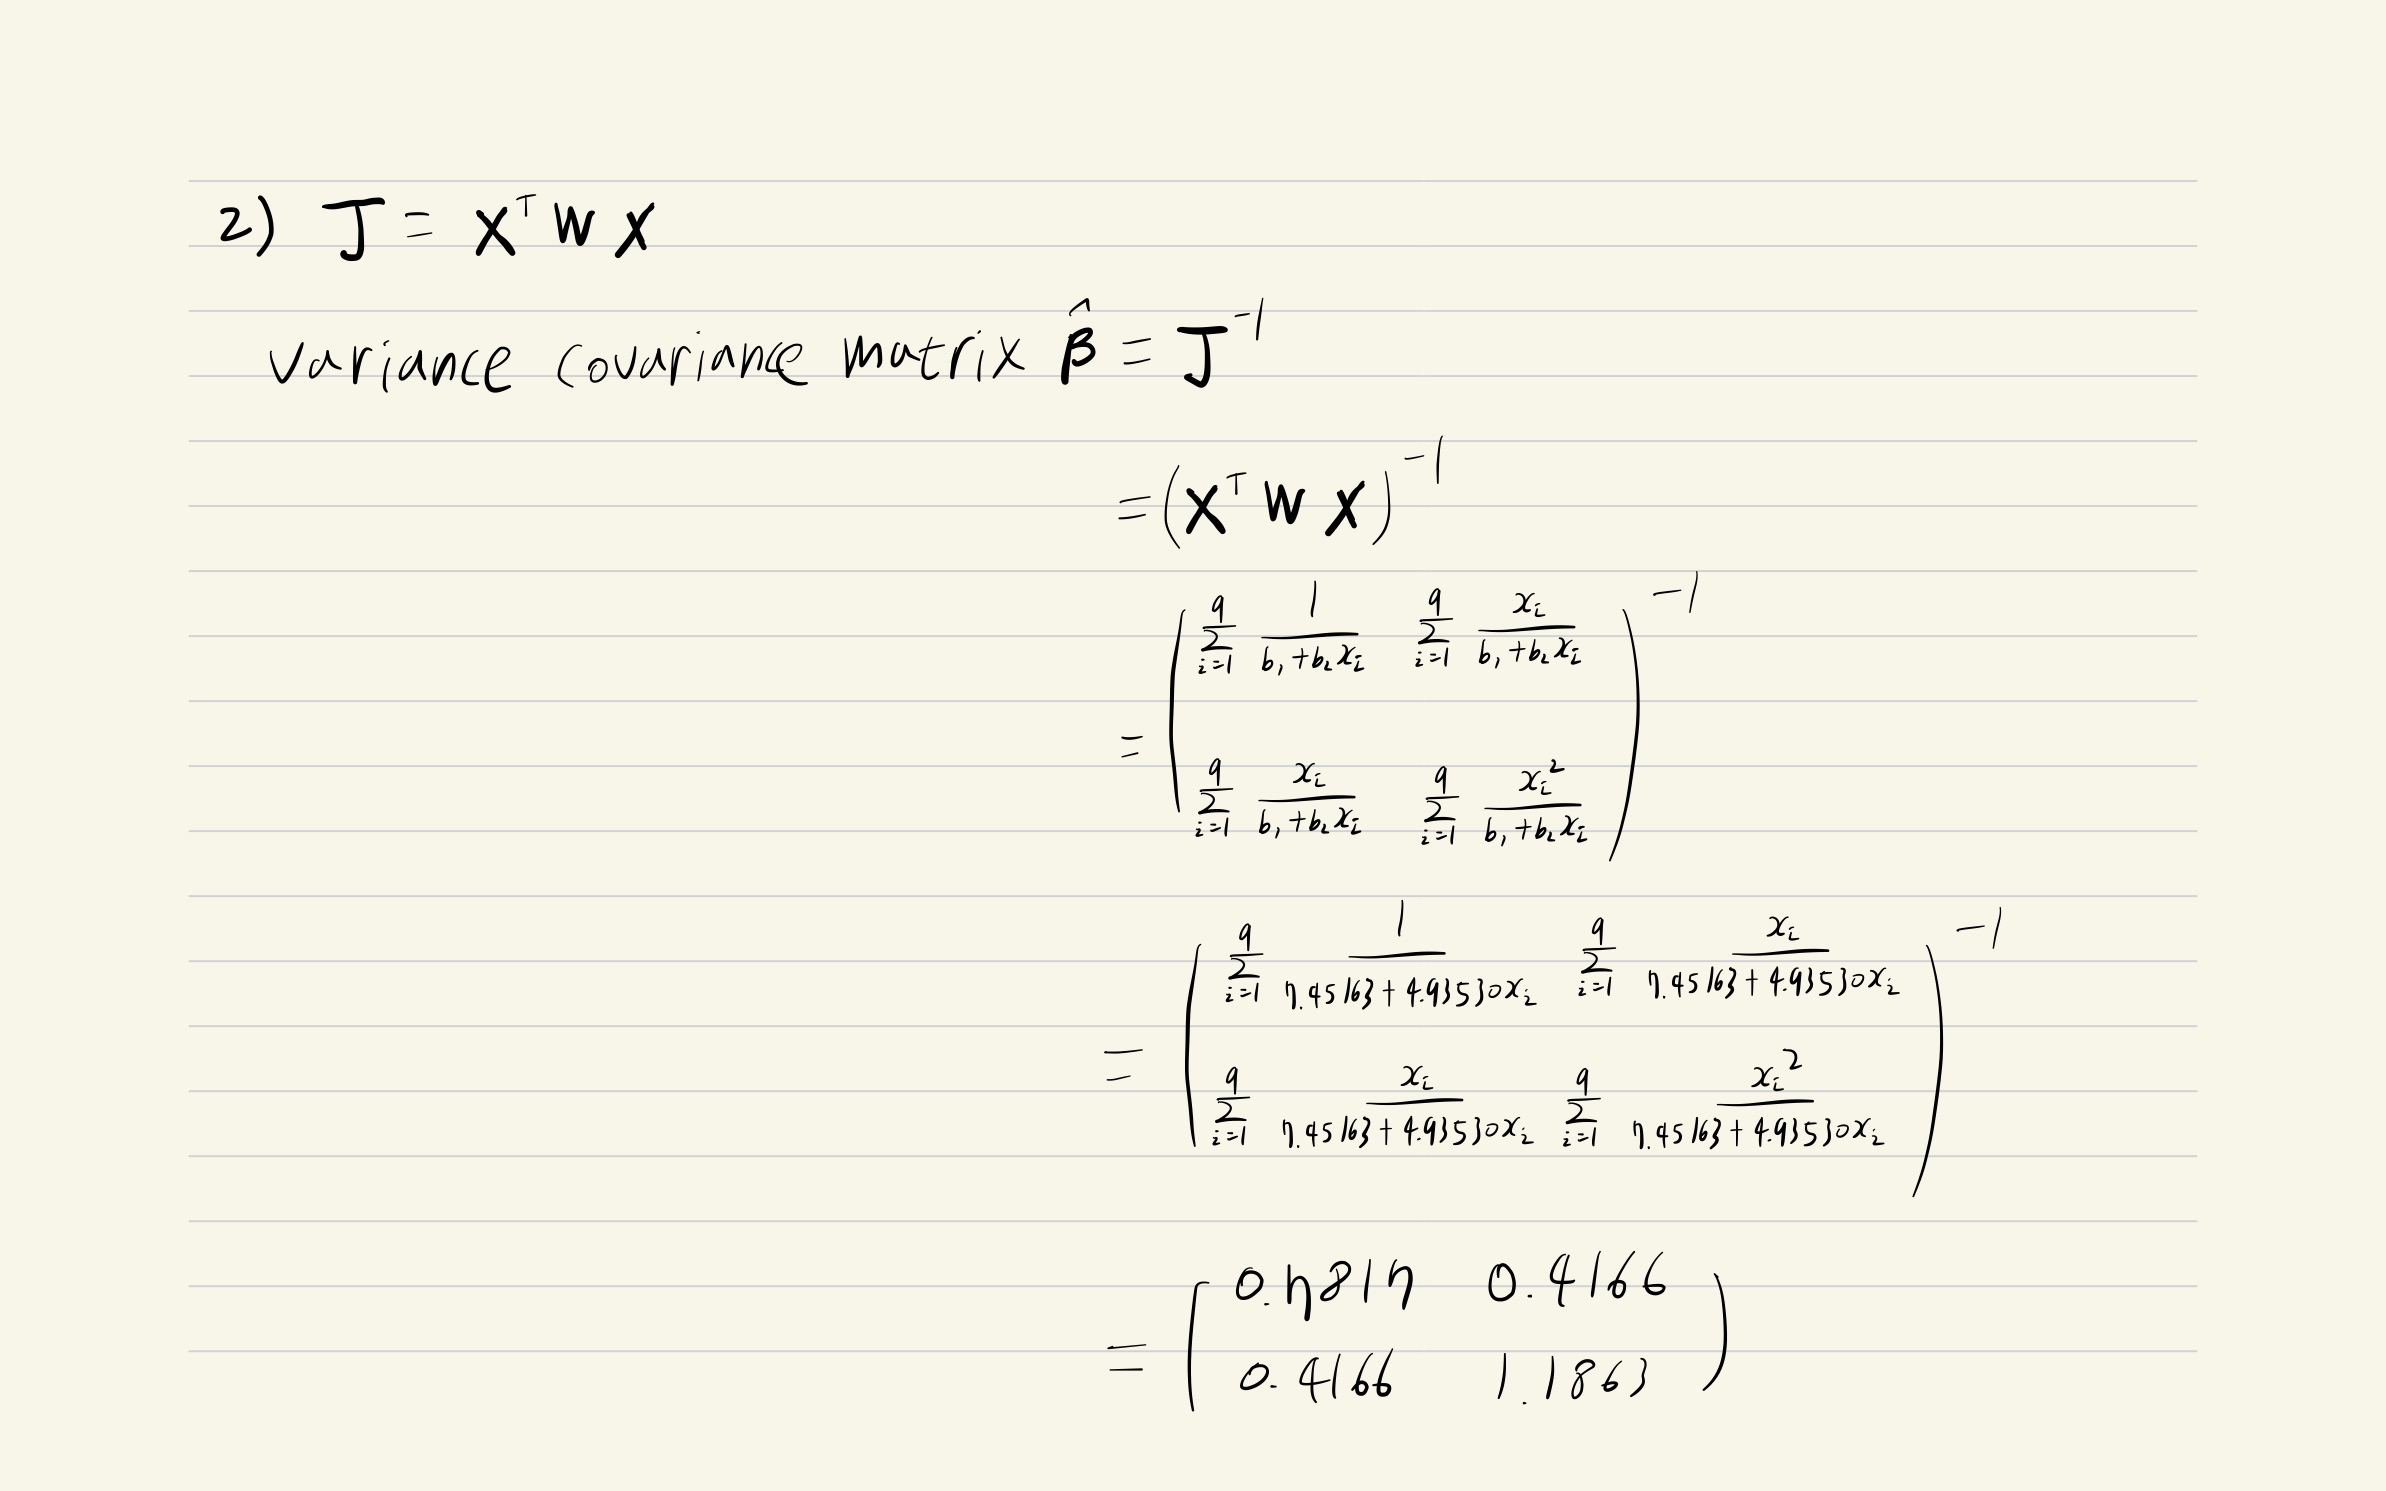 2) J = X^T W X
variance covariance matrix β̂ = J^-1
= (X^T W X)^-1
= ( Σ_{i=1}^{9} 1/(b_1+b_2 x_i)   Σ_{i=1}^{9} x_i/(b_1+b_2 x_i)
Σ_{i=1}^{9} x_i/(b_1+b_2 x_i)   Σ_{i=1}^{9} x_i^2/(b_1+b_2 x_i) )^-1
= ( Σ_{i=1}^{9} 1/(7.45163+4.93530x_i)   Σ_{i=1}^{9} x_i/(7.45163+4.93530x_i)
Σ_{i=1}^{9} x_i/(7.45163+4.93530x_i)   Σ_{i=1}^{9} x_i^2/(7.45163+4.93530x_i) )^-1
= ( 0.7817   0.4166
0.4166   1.1863 )